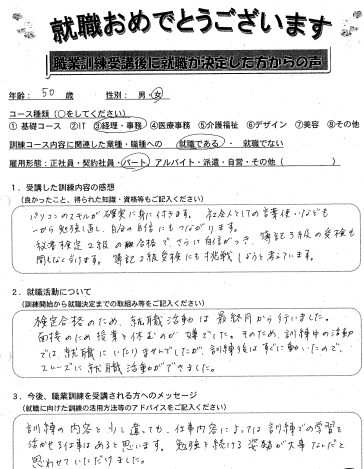 就職おめでとうございます
職業訓練受講後に就職が決定した方からの声
年齢： 50 歳 性別： 男・女
コース種類（○をしてください）
①基礎コース ②IT ③経理・事務 ④医療事務 ⑤介護福祉 ⑥デザイン ⑦美容 ⑧その他
訓練コース内容に関連した業種・職種への 就職である・ 就職でない
雇用形態：正社員・契約社員・パート・アルバイト・派遣・自営・その他（ ）
１．受講した訓練内容の感想
（良かったこと、得られた知識・資格等もご記入ください）
パソコンのスキルが確実に身に付きます。 社会人としての言葉使いなども
一から勉強し直し、自分の自信にもつながります。
秘書検定2級の合格で、さらに自信がつき、簿記3級の受検も
間もなく受けます。 簿記2級受検にも挑戦しようと考えています。
２．就職活動について
（訓練開始から就職決定までの取組み等をご記入ください）
検定合格のため、就職活動は最終月から行いました。
面接のため授業を休むのが嫌でした。そのため、訓練中の活動
では、就職にいたりませんでしたが、訓練後はすぐに動いたので、
スムーズに就職活動ができました。
３．今後、職業訓練を受講される方へのメッセージ
（就職に向けた訓練の活用方法等のアドバイスをご記入ください）
訓練の内容と少し違っても、仕事内容によっては訓練での学習を
活かせる仕事はあると思います。 勉強を続ける姿勢が大事なんだと
思わせていただけました。